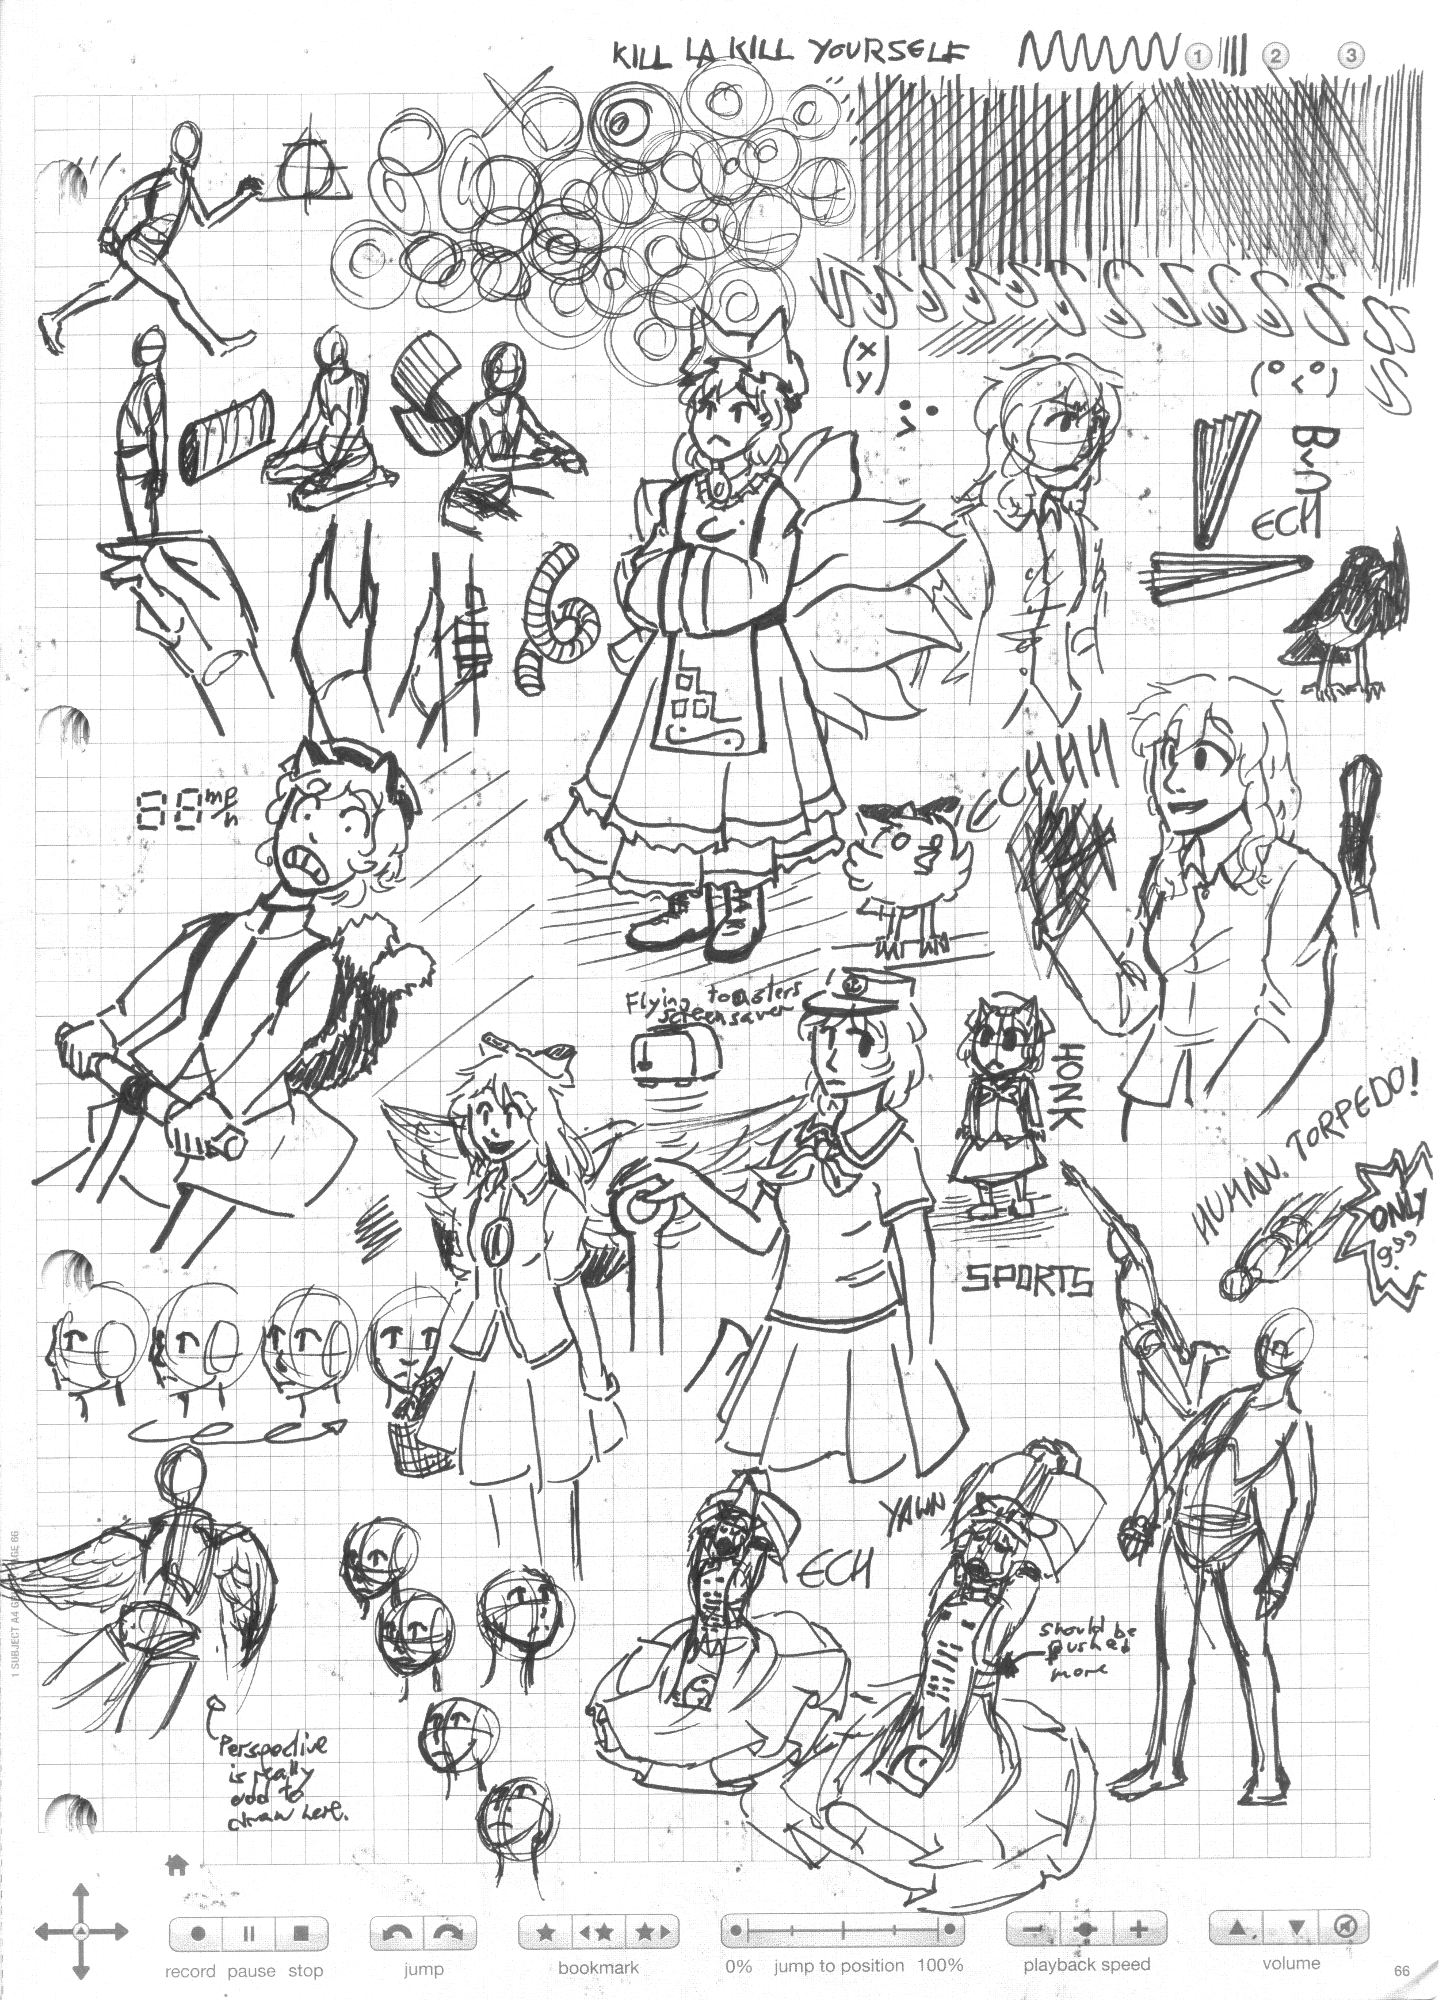 KILL LA KILL YOURSELF
1
2
3
(x
y)
ECH
88 mph
UHHH
Flying toasters
screensaver
HONK
HUMAN. TORPEDO!
ONLY
9.99
SPORTS
YAWN
ECH
should be
pushed
more
Perspective
is really
odd to
draw here.
1 SUBJECT A4
record pause stop
jump
bookmark
0% jump to position 100%
playback speed
volume
66